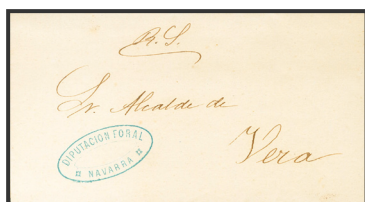 R. S.
Sr. Alcalde de
Vera
DIPUTACION FORAL
NAVARRA